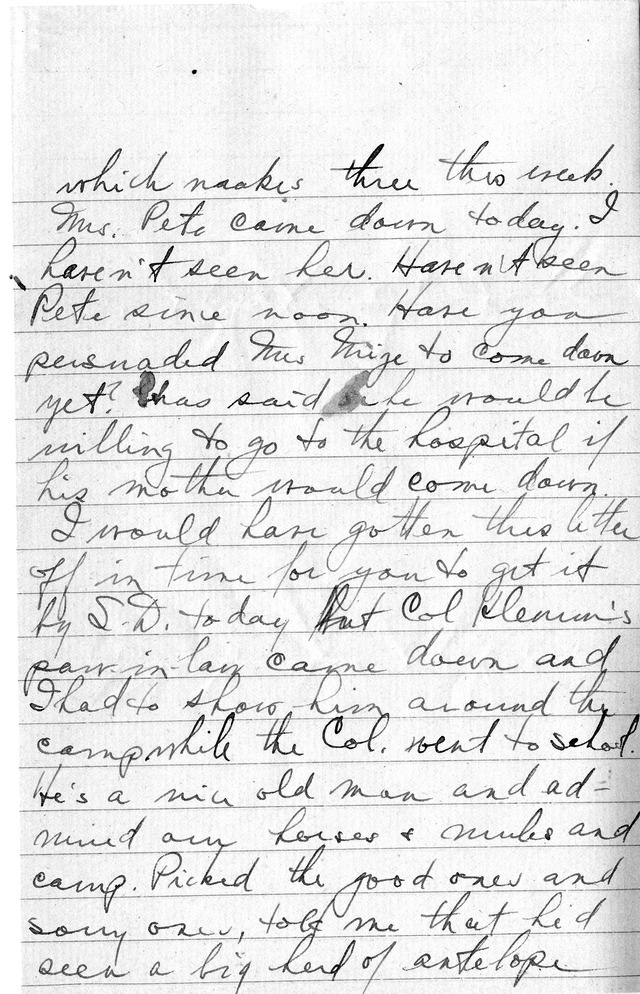 which makes three this week.
Mrs. Pete came down today. I
haven't seen her. Haven't seen
Pete since noon. Have you
persuaded Mrs Mize to come down
yet? has said he would be
willing to go to the hospital if
his mother would come down.
I would have gotten this letter
off in time for you to get it
by S.D. today but Col
paw-in-law came down and
I had to show him around the
camp while the Col. went to school.
He's a nice old man and ad-
mired our horses & mules and
camp. Picked the good ones and
sorry ones, told me that he'd
seen a big herd of antelope